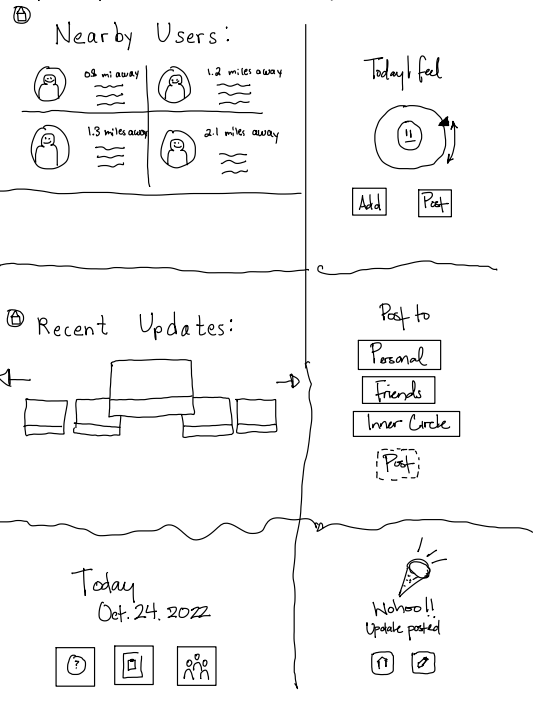 Nearby Users:
0.8 mi away
1.2 miles away
1.3 miles away
2.1 miles away
Today I feel
Add
Post
Recent Updates:
Post to
Personal
Friends
Inner Circle
Post
Today
Oct. 24. 2022
?
Wohoo!!
Update posted